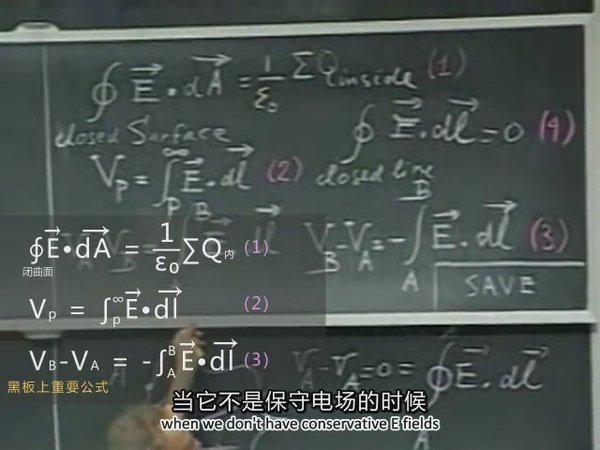 ∮ E⃗ · dA⃗ = 1/ε₀ ΣQinside (1)
closed Surface
∮ E⃗ · dl⃗ = 0 (4)
closed line
Vₚ = ∫ₚ^∞ E⃗ · dl⃗ (2)
V_B - V_A = -∫_A^B E⃗ · dl⃗ (3)
SAVE
∮E⃗•dA⃗ = 1/ε₀ ΣQ内 (1)
闭曲面
Vₚ = ∫ₚ^∞ E⃗•dl⃗ (2)
V_B-V_A = -∫_A^B E⃗•dl⃗ (3)
黑板上重要公式
V_A - V_A = 0 = ∮ E⃗ · dl⃗
当它不是保守电场的时候
when we don't have conservative E fields